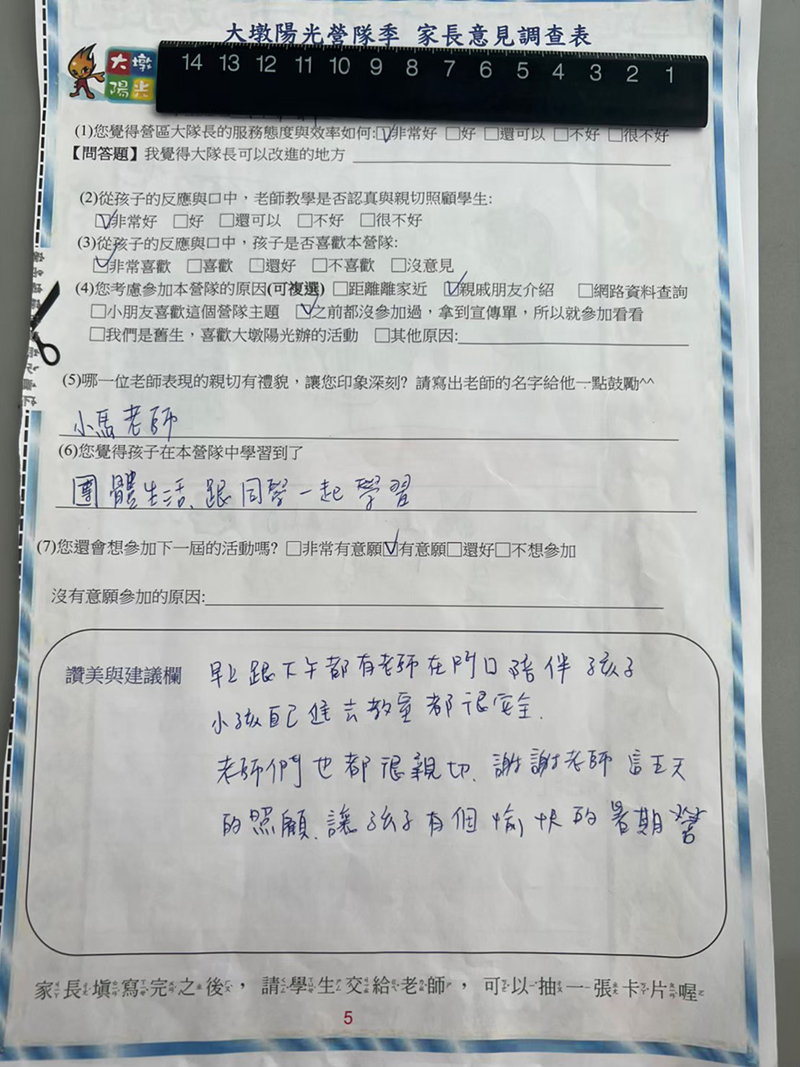 大墩陽光營隊季 家長意見調查表
大墩
陽光
14 13 12 11 10 9 8 7 6 5 4 3 2 1
(1)您覺得營區大隊長的服務態度與效率如何:☑非常好 □好 □還可以 □不好 □很不好
【問答題】我覺得大隊長可以改進的地方
(2)從孩子的反應與口中，老師教學是否認真與親切照顧學生:
☑非常好 □好 □還可以 □不好 □很不好
(3)從孩子的反應與口中，孩子是否喜歡本營隊:
☑非常喜歡 □喜歡 □還好 □不喜歡 □沒意見
(4)您考慮參加本營隊的原因(可複選) □距離離家近 ☑親戚朋友介紹 □網路資料查詢
□小朋友喜歡這個營隊主題 ☑之前都沒參加過，拿到宣傳單，所以就參加看看
□我們是舊生，喜歡大墩陽光辦的活動 □其他原因:
(5)哪一位老師表現的親切有禮貌，讓您印象深刻? 請寫出老師的名字給他一點鼓勵^^
小馬老師
(6)您覺得孩子在本營隊中學習到了
團體生活、跟同學一起學習
(7)您還會想參加下一屆的活動嗎? □非常有意願☑有意願□還好□不想參加
沒有意願參加的原因:
讚美與建議欄 早上跟下午都有老師在門口陪伴孩子
小孩自己進去教室都很安全.
老師們也都很親切、謝謝老師這五天
的照顧、讓孩子有個愉快的暑期營
家長填寫完之後，請學生交給老師，可以抽一張卡片喔
5